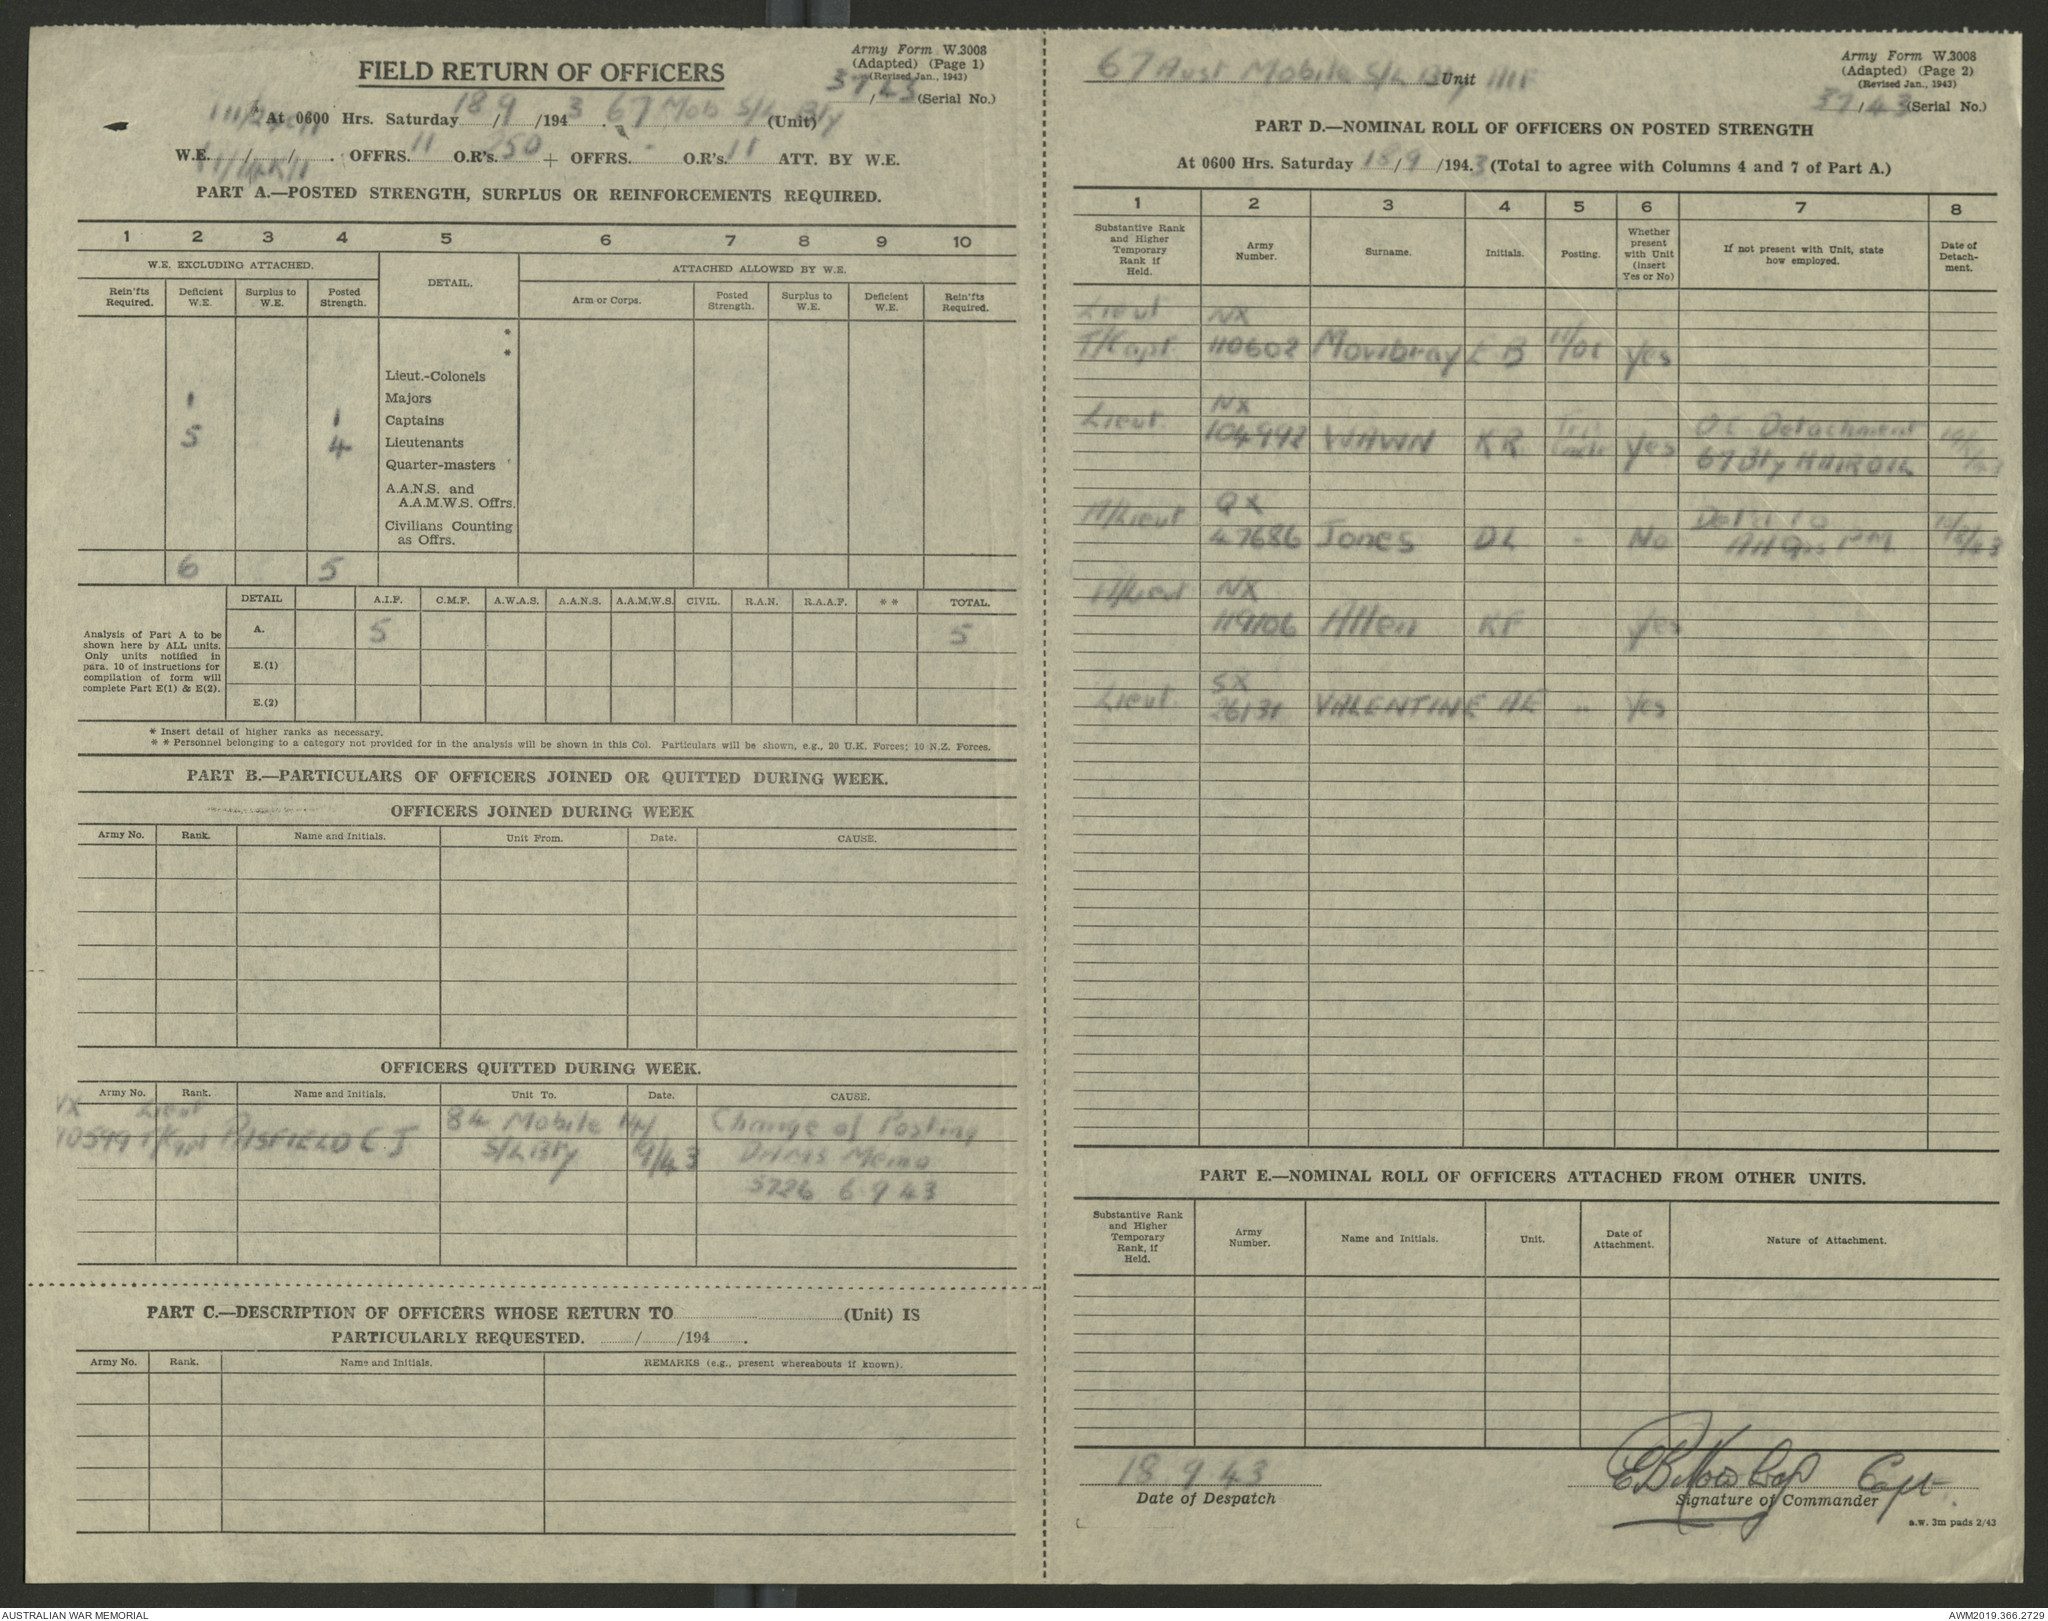 Army Form W.3008
(Adapted) (Page 1)
(Revised Jan., 1943)
37/43 (Serial No.)
FIELD RETURN OF OFFICERS
At 0600 Hrs. Saturday 18/9/1943. 67 Mob S/L Bty (Unit)
W.E. / / . OFFRS. 11 O.R's. 250 + OFFRS. - O.R's. 11 ATT. BY W.E.
PART A.—POSTED STRENGTH, SURPLUS OR REINFORCEMENTS REQUIRED.
1 2 3 4 5 6 7 8 9 10
W.E. EXCLUDING ATTACHED. DETAIL. ATTACHED ALLOWED BY W.E.
Rein'fts Required. Deficient W.E. Surplus to W.E. Posted Strength. Arm or Corps. Posted Strength. Surplus to W.E. Deficient W.E. Rein'fts Required.
*
*
Lieut.-Colonels
1 Majors
1 Captains
5 4 Lieutenants
Quarter-masters
A.A.N.S. and
A.A.M.W.S. Offrs.
Civilians Counting
as Offrs.
6 5
DETAIL A.I.F. C.M.F. A.W.A.S. A.A.N.S. A.A.M.W.S. CIVIL. R.A.N. R.A.A.F. * * TOTAL.
Analysis of Part A to be
shown here by ALL units.
Only units notified in
para. 10 of instructions for
compilation of form will
complete Part E(1) & E(2).
A. 5 5
E.(1)
E.(2)
* Insert detail of higher ranks as necessary.
* * Personnel belonging to a category not provided for in the analysis will be shown in this Col. Particulars will be shown, e.g., 20 U.K. Forces; 10 N.Z. Forces.
PART B.—PARTICULARS OF OFFICERS JOINED OR QUITTED DURING WEEK.
OFFICERS JOINED DURING WEEK
Army No. Rank. Name and Initials. Unit From. Date. CAUSE.
OFFICERS QUITTED DURING WEEK.
Army No. Rank. Name and Initials. Unit To. Date. CAUSE.
Lieut 84 Mobile Change of Posting
T/Capt C.J S/L Bty 9/43 Memo
5726 6 9 43
PART C.—DESCRIPTION OF OFFICERS WHOSE RETURN TO (Unit) IS
PARTICULARLY REQUESTED. / /194 .
Army No. Rank. Name and Initials. REMARKS (e.g., present whereabouts if known).
67 Aust Mobile S/L Bty Unit AIF
Army Form W.3008
(Adapted) (Page 2)
(Revised Jan., 1943)
37/43 (Serial No.)
PART D.—NOMINAL ROLL OF OFFICERS ON POSTED STRENGTH
At 0600 Hrs. Saturday 18/9/1943 (Total to agree with Columns 4 and 7 of Part A.)
1 2 3 4 5 6 7 8
Substantive Rank and Higher Temporary Rank if Held. Army Number. Surname. Initials. Posting. Whether present with Unit (insert Yes or No) If not present with Unit, state how employed. Date of Detachment.
Lieut NX
T/Capt. 110602 Mowbray E B Yes
Lieut. NX OC Detachment
104992 WAWN KR Yes 67 Bty
A/Lieut QX Det'd to
47686 Jones DL - No
A/Lieut NX
119106 Allen KF - Yes
Lieut. SX
26131 VALENTINE AE - Yes
PART E.—NOMINAL ROLL OF OFFICERS ATTACHED FROM OTHER UNITS.
Substantive Rank and Higher Temporary Rank, if Held. Army Number. Name and Initials. Unit. Date of Attachment. Nature of Attachment.
18 9 43
Date of Despatch
E B Mowbray Capt.
Signature of Commander
a.w. 3m pads 2/43
AUSTRALIAN WAR MEMORIAL
AWM2019.366.2729